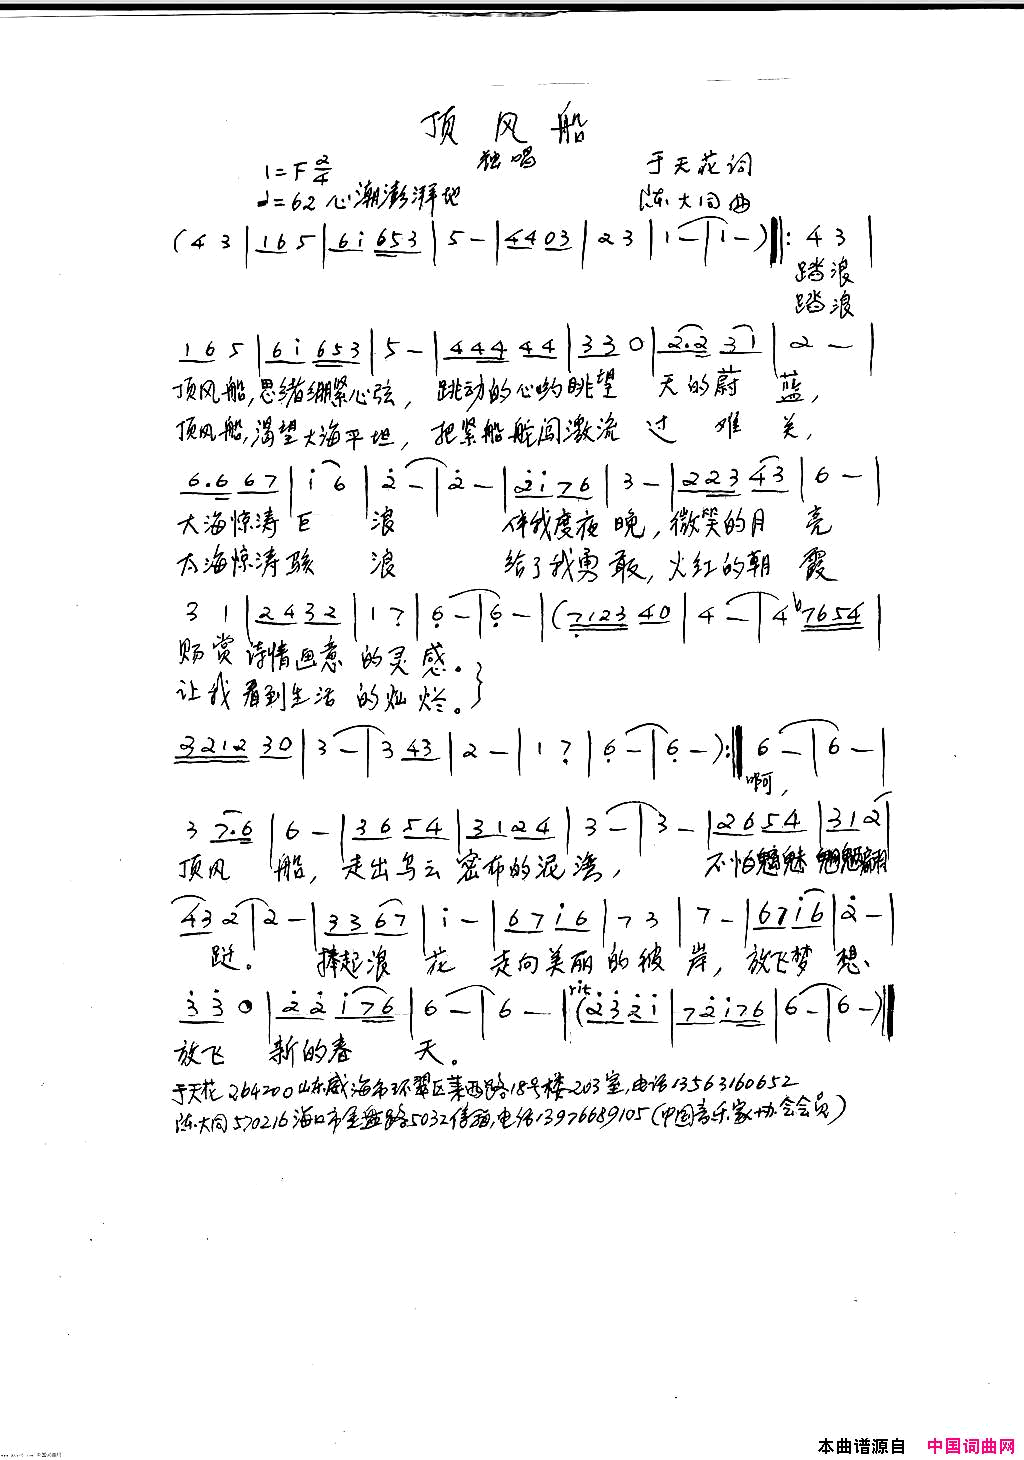 顶风船
独唱
1=F 2/4
于天花词
♩=62 心潮澎湃地
陈大同曲
(4 3 | 1 6 5 | 6 i 6 5 3 | 5 - | 4 4 0 3 | 2 3 | 1 - | 1 - ) ‖: 4 3 |
踏浪
踏浪
1 6 5 | 6 i 6 5 3 | 5 - | 4 4 4 4 4 | 3 3 0 | 2. 2 3 1 | 2 - |
顶风船,思绪绷紧心弦, 跳动的心哟眺望 天的蔚 蓝,
顶风船,渴望大海平坦, 把紧船舵闯激流 过 难 关,
6. 6 6 7 | i 6 | 2 - | 2 - | 2 i 7 6 | 3 - | 2 2 3 4 3 | 6 - |
大海惊涛巨 浪 伴我度夜晚,微笑的月 亮
大海惊涛骇 浪 给了我勇敢,火红的朝 霞
3 1 | 2 4 3 2 | 1 7 | 6 - | 6 - | ( 7 1 2 3 4 0 | 4 - | 4 b7 6 5 4 |
赐赏诗情画意 的灵感。
让我看到生活 的灿烂。
3 2 1 2 3 0 | 3 - | 3 4 3 | 2 - | 1 7 | 6 - | 6 - ) :‖ 6 - | 6 - |
啊,
3 7. 6 | 6 - | 3 6 5 4 | 3 1 2 4 | 3 - | 3 - | 2 6 5 4 | 3 1 2 |
顶风 船, 走出乌云 密布的泥湾, 不怕魑魅
4 3 2 | 2 - | 3 3 6 7 | i - | 6 7 i 6 | 7 3 | 7 - | 6 7 i 6 | 2 - |
跹。 捧起浪 花 走向美丽的彼 岸, 放飞梦 想、
3 3 0 | 2 2 i 7 6 | 6 - | 6 - | rit (2 3 2 i | 7 2 i 7 6 | 6 - | 6 - ) ‖
放飞 新的春 天。
于天花 264200山东威海市环翠区莱西路18号楼203室,电话13563160652
陈大同 570216海口市金盘路5032信箱,电话13976689105(中国音乐家协会会员)
本曲谱源自 中国词曲网